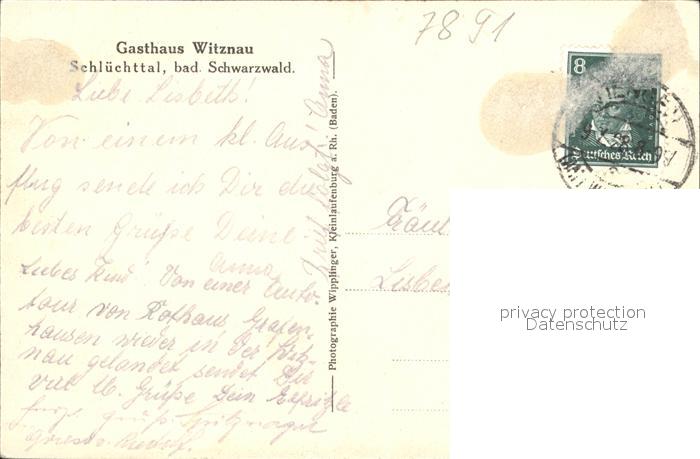 7891
Gasthaus Witznau
Schlüchttal, bad. Schwarzwald.
Liebe Lisbeth!
Von einem kl. Aus-
flug sende ich Dir die
besten Grüße Deine
Anna
Liebes Kind! Von einer Auto-
tour von Rothaus Grafen-
hausen wieder in der Witz-
nau gelandet sendet Dir
viel lb. Grüße Dein
herzl. Grüße
Anna
Photographie Wipplinger, Kleinlaufenburg a. Rh. (Baden).
8
Deutsches Reich
Fräul
Lisbe
privacy protection
Datenschutz